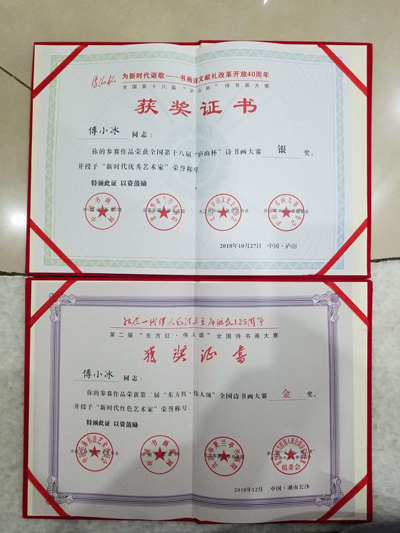 为新时代讴歌——书画诗文献礼改革开放40周年
全国第十八届“庐山杯”诗书画大赛
获奖证书
傅小冰 同志：
你的参赛作品荣获全国第十八届“庐山杯”诗书画大赛 银 奖。
并授予“新时代优秀艺术家”荣誉称号
特颁此证 以资鼓励
2018年10月27日 中国·庐山
纪念一代伟人毛泽东主席诞辰125周年
第二届“东方红·伟人颂”全国诗书画大赛
获奖证书
傅小冰 同志：
你的参赛作品荣获第二届“东方红·伟人颂”全国诗书画大赛 金 奖，
并授予“新时代红色艺术家”荣誉称号
特颁此证 以资鼓励
组委会
2018年12月 中国·湖南长沙